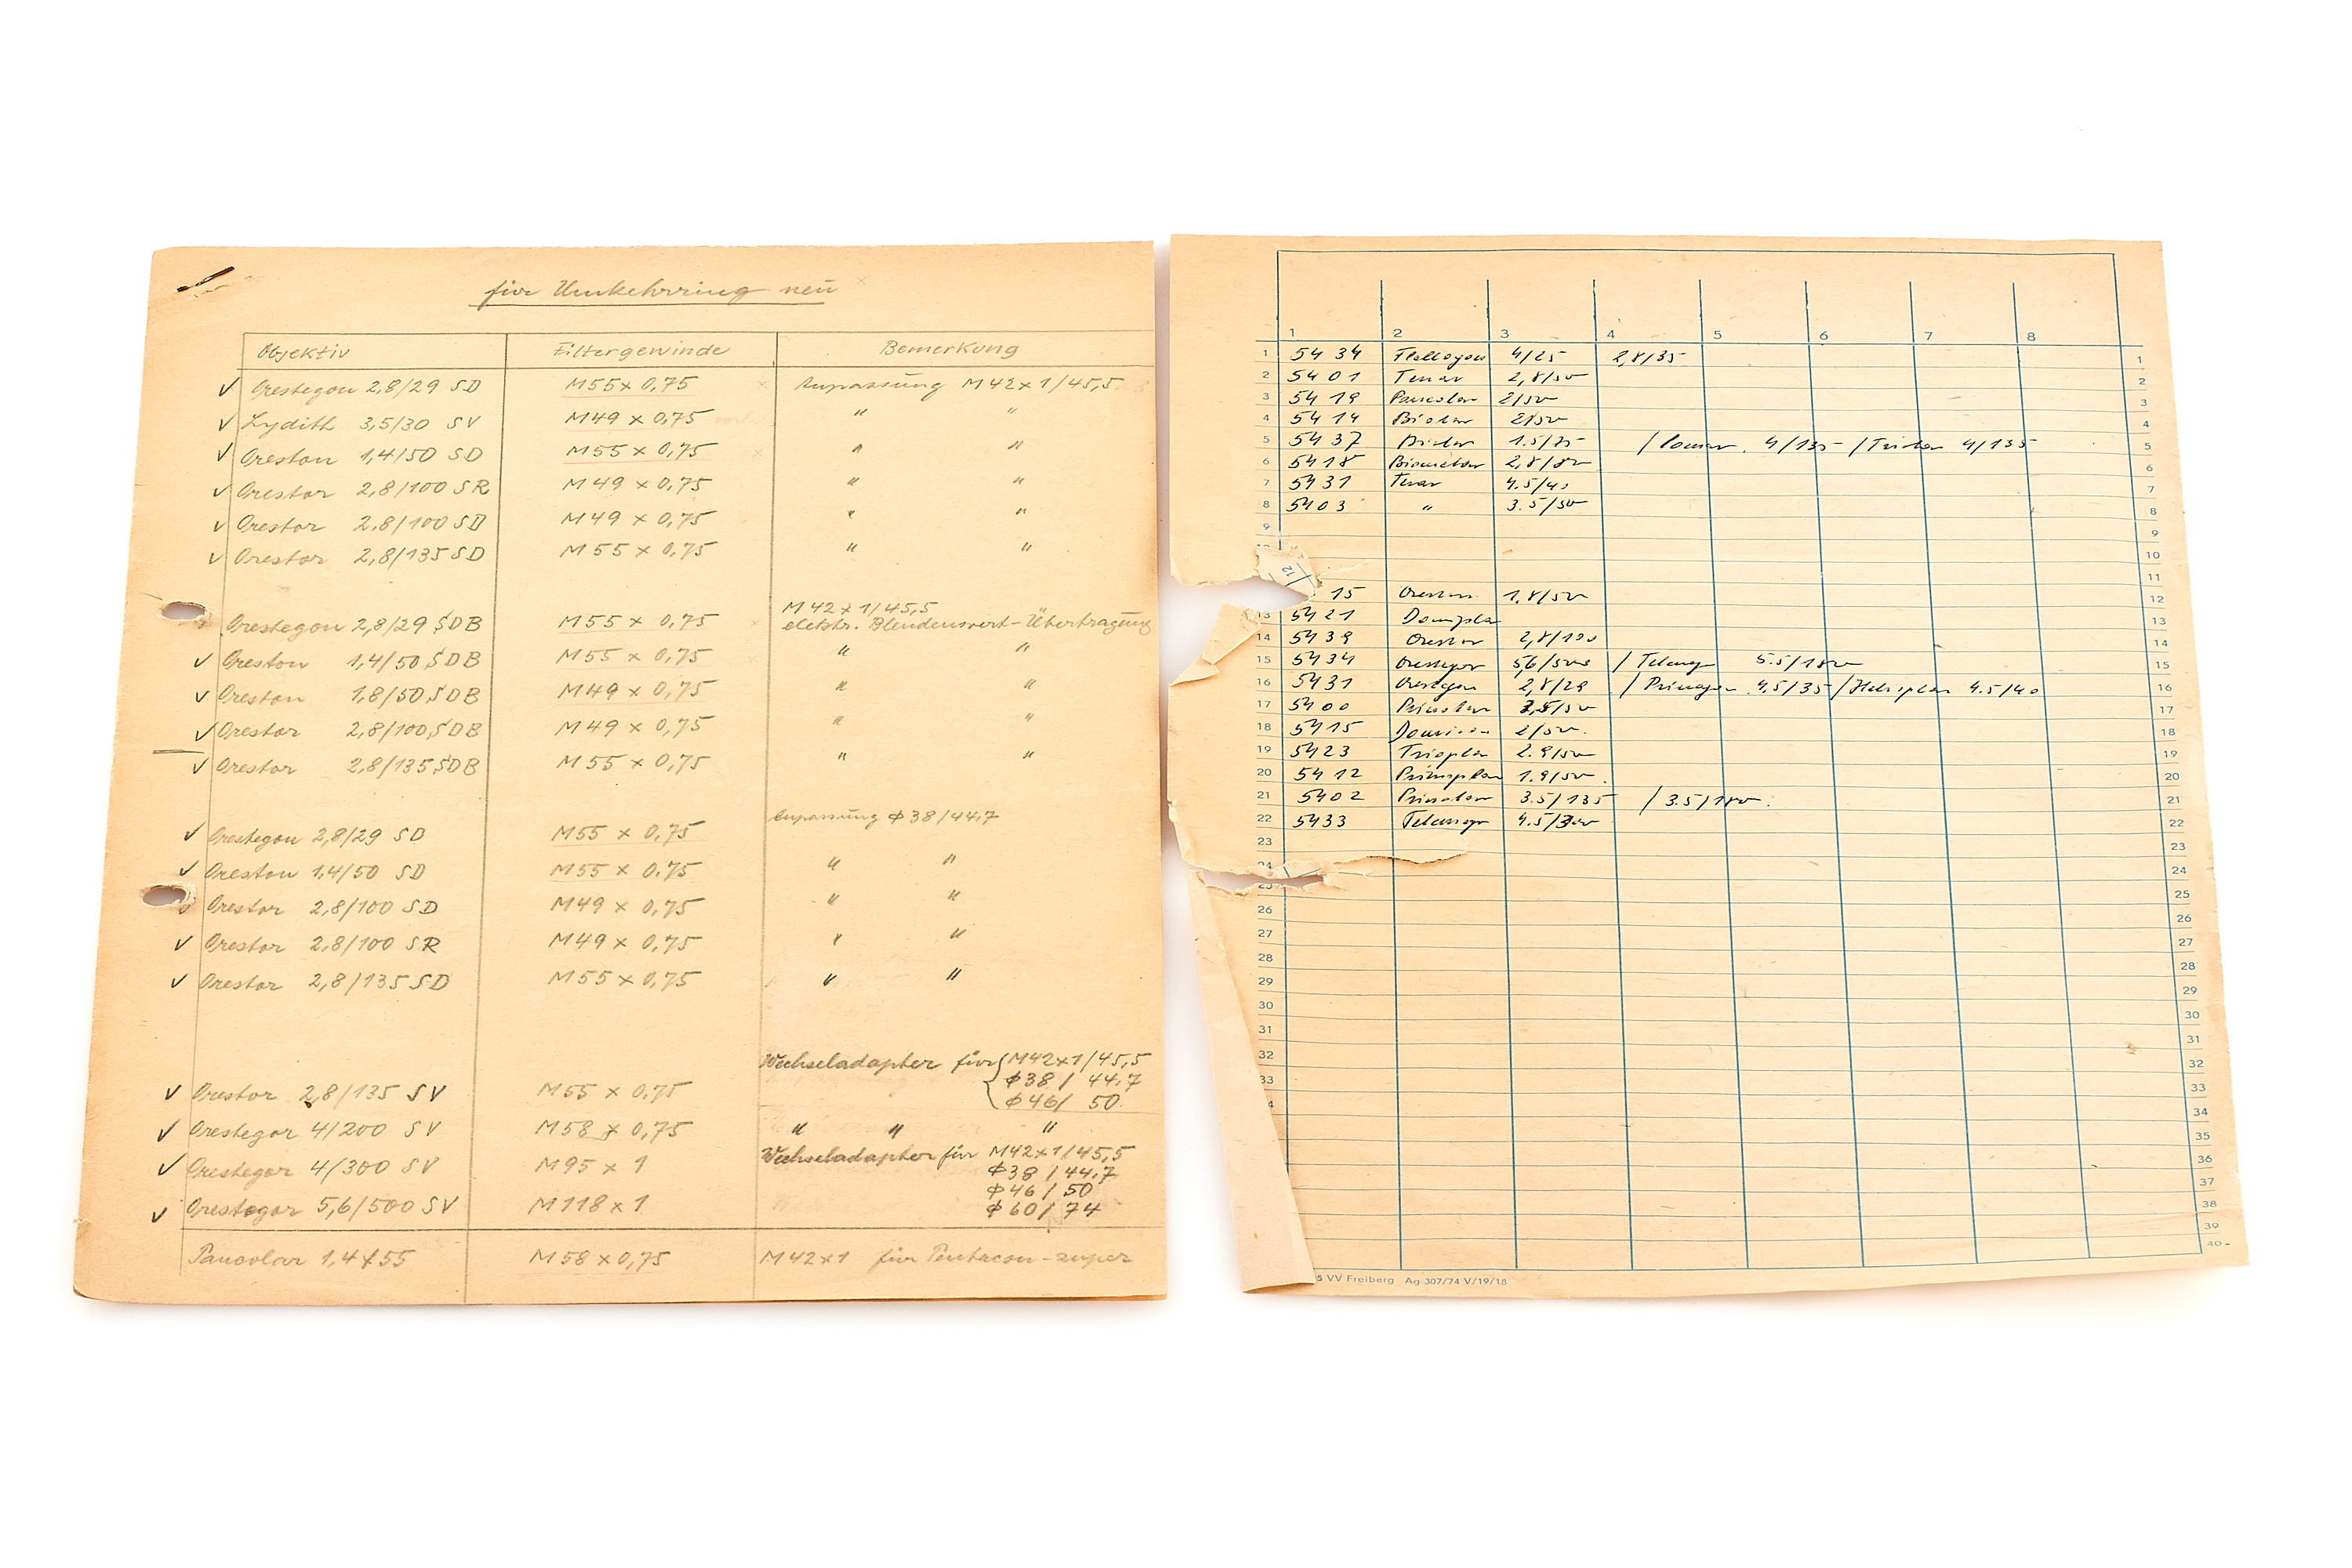 für Umkehrring neu
Objektiv Filtergewinde Bemerkung
✓ Orestegon 2,8/29 SD M55 x 0,75 Anpassung M42x1/45,5
✓ Lydith 3,5/30 SV M49 x 0,75 " "
✓ Oreston 1,4/50 SD M55 x 0,75 " "
✓ Orestor 2,8/100 SR M49 x 0,75 " "
✓ Orestor 2,8/100 SD M49 x 0,75 " "
✓ Orestor 2,8/135 SD M55 x 0,75 " "
M42x1/45,5
Orestegon 2,8/29 SDB M55 x 0,75 elektr. Blendenwert-Übertragung
✓ Oreston 1,4/50 SDB M55 x 0,75 " "
✓ Oreston 1,8/50 SDB M49 x 0,75 " "
✓ Orestor 2,8/100 SDB M49 x 0,75 " "
✓ Orestor 2,8/135 SDB M55 x 0,75 " "
Anpassung Φ38/44,7
✓ Orestegon 2,8/29 SD M55 x 0,75
✓ Oreston 1,4/50 SD M55 x 0,75 " "
Orestor 2,8/100 SD M49 x 0,75 " "
✓ Orestor 2,8/100 SR M49 x 0,75 " "
✓ Orestor 2,8/135 SD M55 x 0,75 " "
Wechseladapter für M42x1/45,5
Φ38 / 44,7
✓ Orestor 2,8/135 SV M55 x 0,75 Φ46/ 50
✓ Orestegor 4/200 SV M58 x 0,75 " " "
Wechseladapter für M42x1/45,5
✓ Orestegor 4/300 SV M95 x 1 Φ38 / 44,7
Φ46 / 50
✓ Orestegor 5,6/500 SV M118 x 1 Φ60 / 74
Pancolar 1,4/55 M58 x 0,75 M42x1 für Pentacon-super
1 2 3 4 5 6 7 8
1 5434 Flektogon 4/25 2,8/35 1
2 5401 Tessar 2,8/50 2
3 5419 Pancolar 2/50 3
4 5414 Biotar 2/50 4
5 5437 Biotar 1.5/75 / 4/135 / Triotar 4/135 5
6 5418 Biometar 2,8/80 6
7 5431 Tessar 4.5/40 7
8 5403 " 3.5/50 8
9 9
10
11
12
15 Oreston 1,8/50 12
13 5421 Domiplan 13
14 5439 Orestor 2,8/100 14
15 5434 Orestegor 5,6/500 / Telemegor 5.5/180 15
16 5431 Orestegon 2,8/29 / Primagon 4,5/35 / Helioplan 4.5/40 16
17 5400 Primotar 3,5/50 17
18 5415 Domiron 2/50 18
19 5423 Trioplan 2.9/50 19
20 5412 Primoplan 1.9/50 20
21 5402 Primotar 3.5/135 / 3.5/180 21
22 5433 Telemegor 4.5/300 22
23 23
24 24
25 25
26 26
27 27
28 28
29 29
30 30
31 31
32 32
33 33
4 34
35
36
37
38
39
40
5 VV Freiberg Ag 307/74 V/19/18